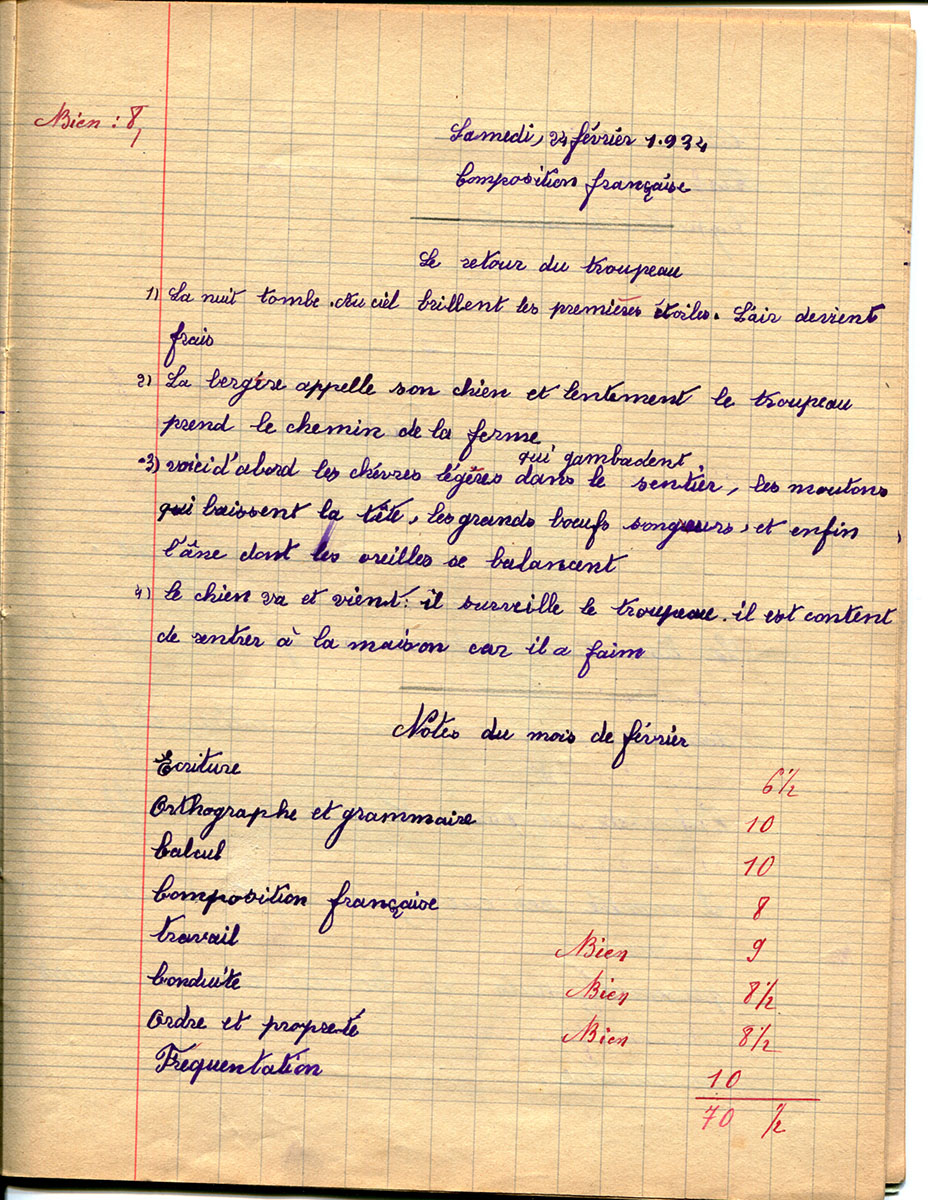 Bien : 8
Samedi, 24 février 1.934
Composition française
Le retour du troupeau
1) La nuit tombe. Au ciel brillent les premières étoiles. L'air devient
frais
2) La bergère appelle son chien et lentement le troupeau
prend le chemin de la ferme
qui gambadent
3) voici d'abord les chèvres légères dans le sentier, les moutons
qui baissent la tête, les grands bœufs songeurs, et enfin
l'âne dont les oreilles se balancent
4) le chien va et vient: il surveille le troupeau. il est content
de rentrer à la maison car il a faim
Notes du mois de février
Ecriture 6 1/2
Orthographe et grammaire 10
Calcul 10
Composition française 8
travail Bien 9
Conduite Bien 8 1/2
Ordre et propreté Bien 8 1/2
Fréquentation 10
70 1/2